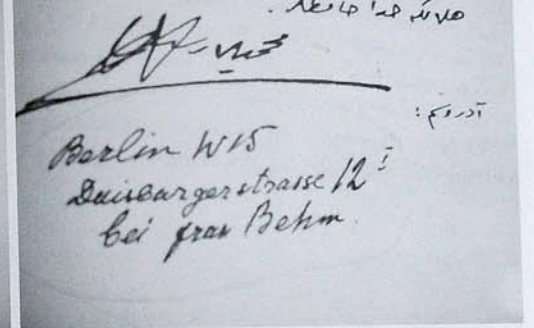 خدا حافظ
آدرسم:
Berlin W15
Duisburgerstrasse 12 I
bei frau Behm.